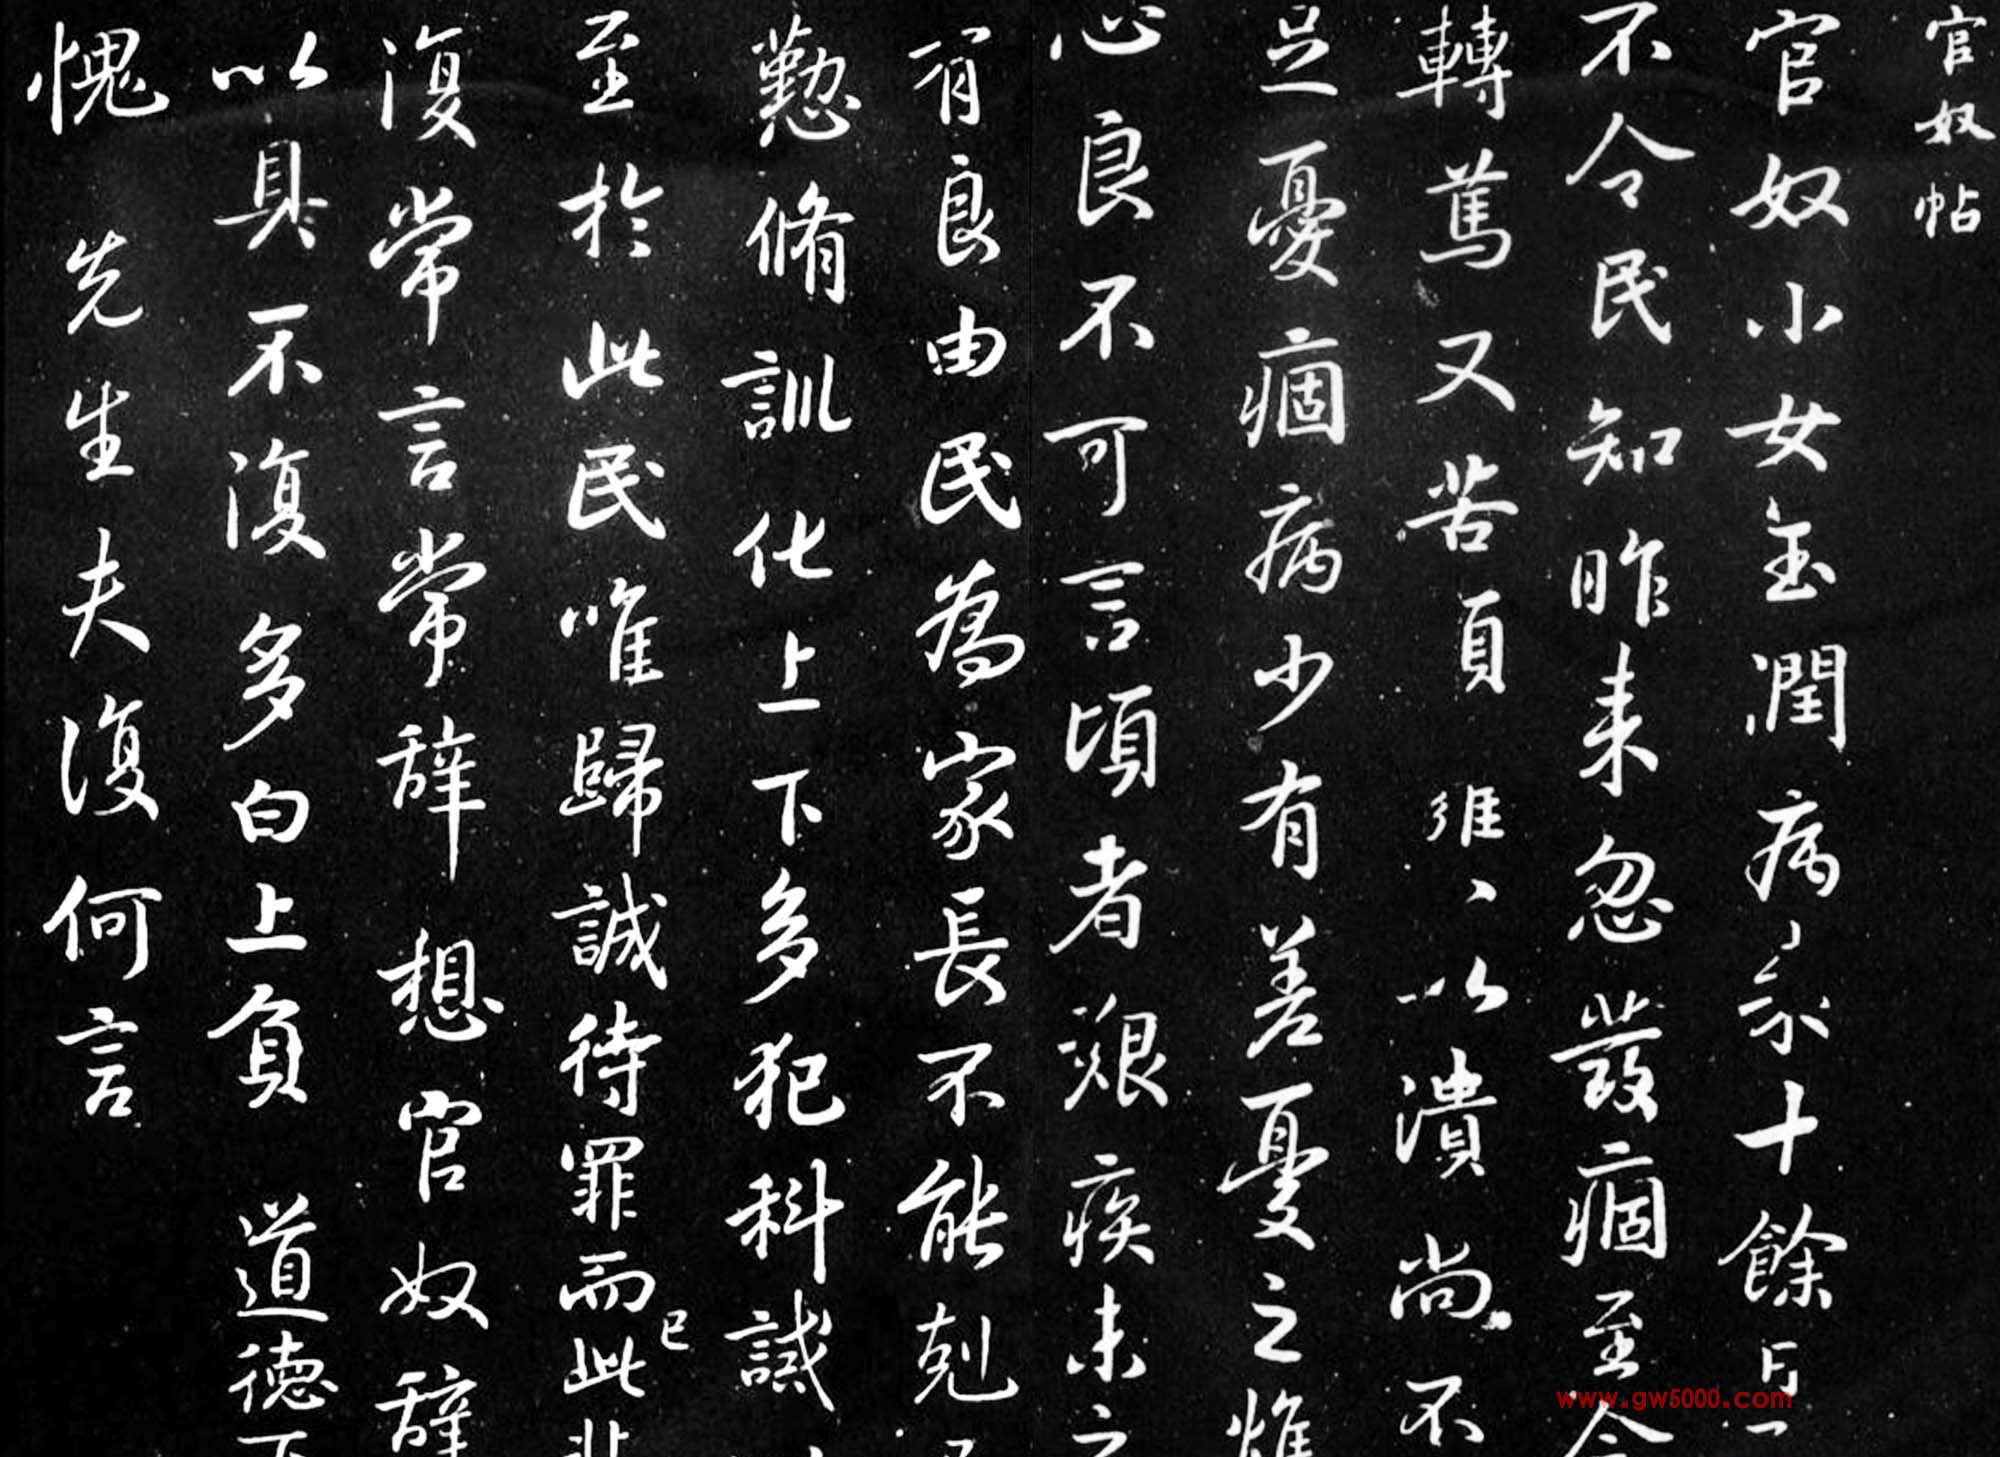 官奴帖
官奴小女玉潤病來十餘日
不令民知昨來忽發痼至今
轉篤又苦頭癰頭癰以潰尚不
足憂痼病少有差憂之燋
心良不可言頃者艱疾未之
有良由民為家長不能剋己
懃脩訓化上下多犯科誡以
至於此民唯歸誠待罪而已此非
復常言常辭想官奴辭
以具不復多白上負道德下
愧先生夫復何言
www.gw5000.com